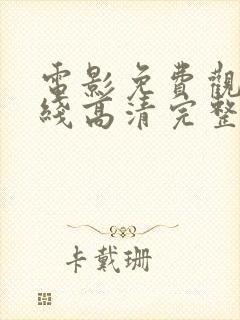 電影免費觀
綫高清完整
卡戴珊